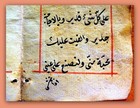 على كل شىء قدير وبالاجابة
جدير والقيت عليك
محبة منى ولتصنع على عينى